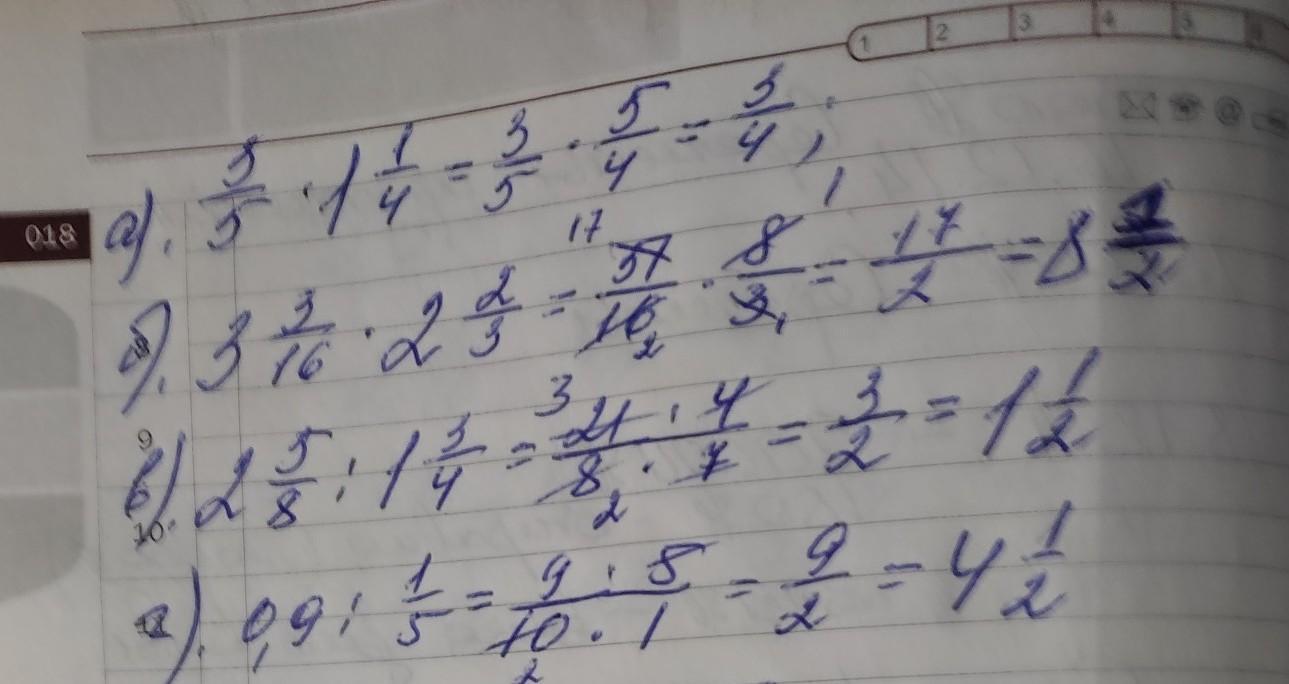 1 2 3 4 5 6
018
а). 3/5 · 1 1/4 = 3/5 · 5/4 = 3/4;
б). 3 3/16 · 2 2/3 = 17 51/16 2 · 8 1/3 1 = 17/2 = 8 1/2
9
в). 2 5/8 : 1 3/4 = 3 21 · 4 / 8 2 · 7 = 3/2 = 1 1/2
10
а). 0,9 : 1/5 = 9 · 5 / 10 2 · 1 = 9/2 = 4 1/2